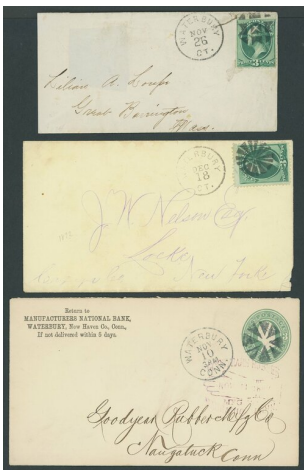 WATERBURY
NOV
26
CT.
A.
Great Barrington
Mass.
WATERBURY
DEC
18
CT.
J. W. Nelson Esq
Locke
New Yorke
Return to
MANUFACTURERS NATIONAL BANK,
WATERBURY, New Haven Co., Conn.,
If not delivered within 5 days.
WATERBURY
NOV
10
CONN.
Goodyear Rubber Mfg Co
Naugatuck
Conn